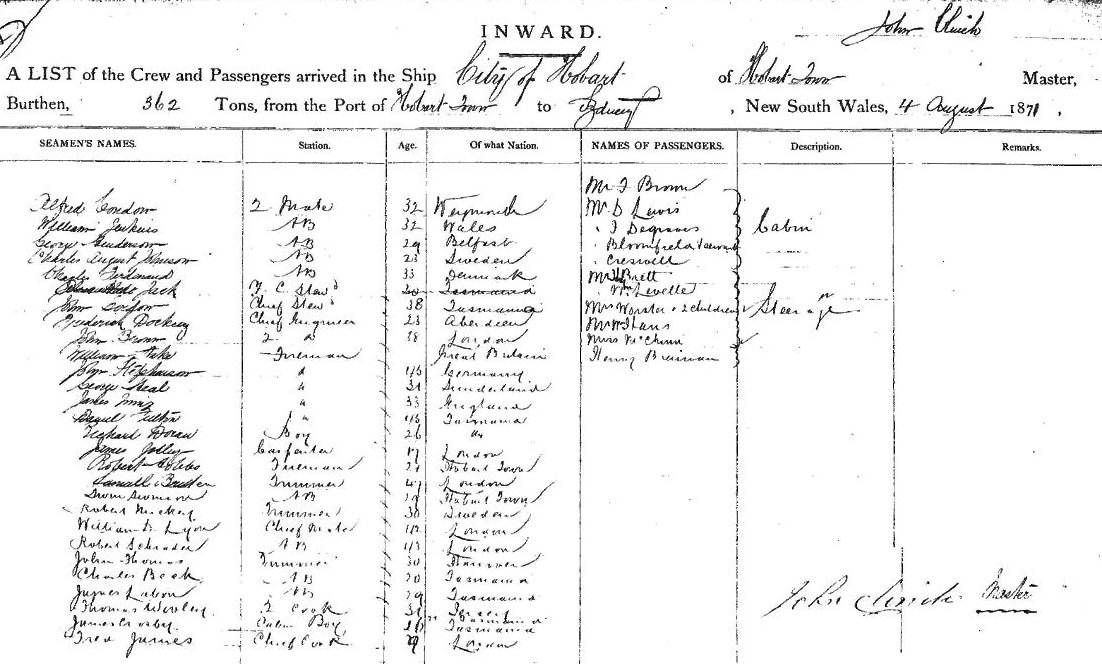 John Clinch
INWARD.
A LIST of the Crew and Passengers arrived in the Ship City of Hobart of Hobart Town Master,
Burthen, 362 Tons, from the Port of Hobart Town to Sydney, New South Wales, 4 August 1871.
SEAMEN'S NAMES. Station. Age. Of what Nation. NAMES OF PASSENGERS. Description. Remarks.
Mr J Brown
Alfred Condow 2 Mate 32 Weymouth Mr D Lewis
William Jenkins AB 32 Wales " J Degraves Cabin
George Henderson AB 29 Belfast " Bloomfield
Charles August Johnson AB 23 Sweden " Creswell
Charles Ferdinand AB 33 Denmark Mr Brett
Jack F. C. Stewd 20 Tasmania Wm Levelle
John Chief Stewd 38 Tasmania Mrs Worster & 2 children Steerage
Frederick Dockray Chief Engineer 23 Aberdeen
John Brown 2 " 38 London Miss McChinn
William Fireman Great Britain Henry Breinan
John Stephenson " 43 Germany
George Neal " 31 Sunderland
James " 33 England
Daniel " 43 Tasmania
Boy 26 "
James Jolley Carpenter 17 London
Robert Hobbs Fireman 21 Hobart Town
Trimmer 47 London
AB 19 Hobart Town
Robert Trimmer 30 Sweden
William B. Lyon Chief Mate London
Robert Schroder AB 43 London
John Thomas Trimmer 30 Hanover
Charles Beek AB 20 Tasmania
James AB 29 Tasmania John Clinch Master
Thomas Worley 2 Cook 31 Jersey
James Crosby Cabin Boy 16 Tasmania
Fred James Chief Cook 29 London